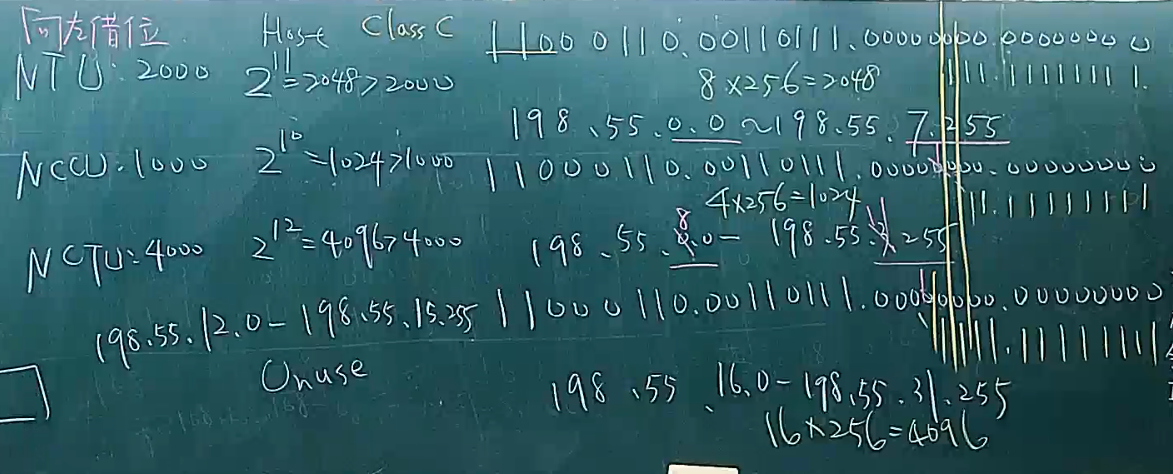 向左借位 Host Class C 11000110.00110111.00000000.00000000
NTU: 2000 2^11=2048>2000 8×256=2048 111.11111111.
198.55.0.0~198.55.7.255
NCCU:1000 2^10=1024>1000 11000110.00110111.00000000.00000000
4×256=1024 11.11111111
NCTU:4000 2^12=4096>4000 198.55.8.0- 198.55.11.255
198.55.12.0-198.55.15.255 11000110.00110111.00000000.00000000
1111.11111111
Unuse 198.55.16.0-198.55.31.255
16×256=4096